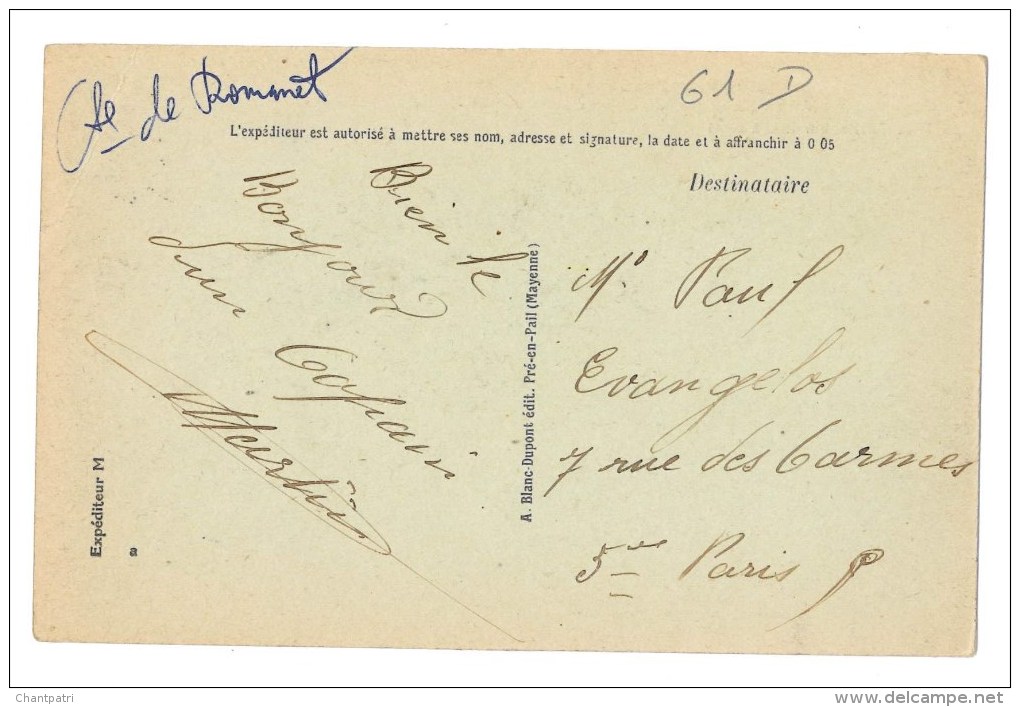 de Romanet
61 D
L'expéditeur est autorisé à mettre ses nom, adresse et signature, la date et à affranchir à 0 05
Destinataire
Bien le
Bonjour
d'un Copain
Martin
A. Blanc-Dupont édit. Pré-en-Pail (Mayenne)
Expéditeur M
a
Mr. Paul
Evangelos
7 rue des Carmes
5me Paris
Chantpatri
www.delcampe.net